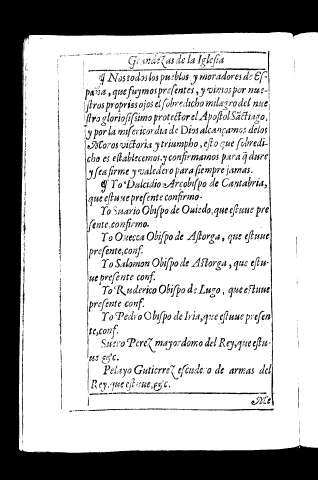 Grandezas de la Iglesia
¶ Nos todos los pueblos y moradores de Es-
paña, que fuymos presentes, y vimos por nue-
stros proprios ojos el sobredicho milagro del nue
stro gloriosissimo protector el Apostol Sãctiago,
y por la misericordia de Dios alcançamos delos
Moros victoria y triumpho, esto que sobredi-
cho es establecemos, y confirmamos para q̃ dure
y sea firme y valedero para siempre jamas.
¶ Yo Dulcidio Arcobispo de Cantabria,
que estuue presente confirmo.
Yo Suario Obispo de Ouiedo, que estuue pre
sente, confirmo.
Yo Ouecca Obispo de Astorga, que estuue
presente, conf.
Yo Salomon Obispo de Astorga, que estu-
ue presente conf.
Yo Ruderico Obispo de Lugo, que estuue
presente conf.
Yo Pedro Obispo de Iria, que estuue presen
te, conf.
Suero Perez mayordomo del Rey, que estu-
uo &c.
Pelayo Gutierrez escudero de armas del
Rey, que estuue, &c.
Me